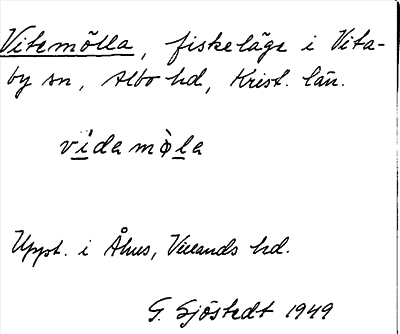 Vitemölla, fiskeläge i Vita-
by sn, Albo hd, Krist. län.
vi̲damø̀l̲a
Uppt. i Åhus, Villands hd.
G. Sjöstedt 1949